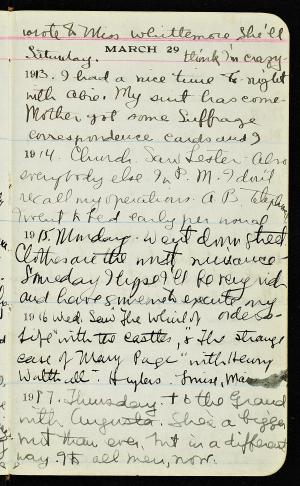 wrote to Miss Whittlemore She'll
Saturday. MARCH 29 think I'm crazy-
1913. I had a nice time to-night
with Abie. My suit has come-
Mother got some Suffrage
correspondence cards and I
1914. Church. Saw Lester. Also
everybody else. In P. M. I don't
recall my operations. A. B. telephoned
I went to bed early per usual
1915. Monday. Went down street.
Clothes are the most nuisance-
Someday I hope I'll be very rich
and have someone to execute my
1916 Wed. Saw "The Whirl of orders-
Life" with the Castles, & "The Strange
case of Mary Page" with Henry
Walthall - Huylers
1917. Thursday - to the Grand
with Augusta. She's a bigger
nut than ever, but in a different
way. It's all men, now.